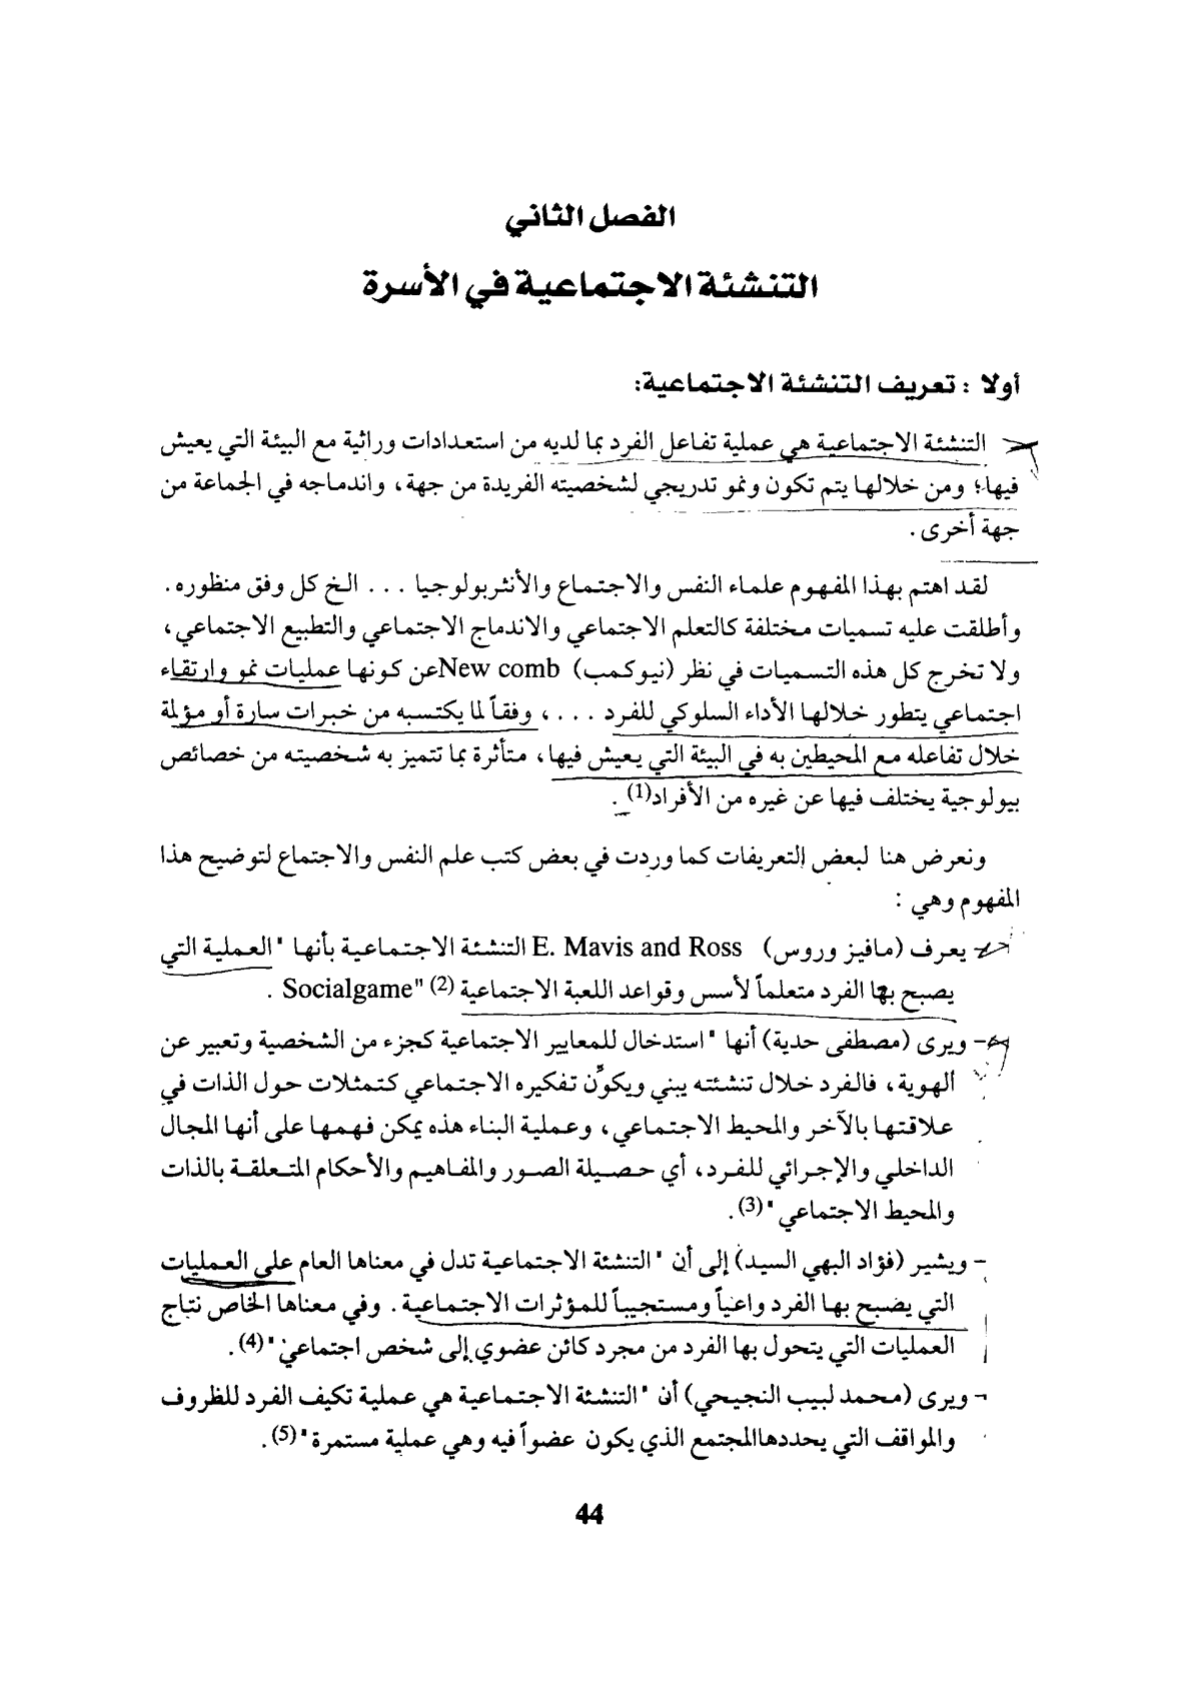 الفصل الثاني
التنشئة الاجتماعية في الأسرة
أولا : تعريف التنشئة الاجتماعية:
التنشئة الاجتماعية هي عملية تفاعل الفرد بما لديه من استعدادات وراثية مع البيئة التي يعيش
فيها؛ ومن خلالها يتم تكون ونمو تدريجي لشخصيته الفريدة من جهة، واندماجه في الجماعة من
جهة أخرى .
لقد اهتم بهذا المفهوم علماء النفس والاجتماع والأنثربولوجيا . . . الخ كل وفق منظوره .
وأطلقت عليه تسميات مختلفة كالتعلم الاجتماعي والاندماج الاجتماعي والتطبيع الاجتماعي ،
ولا تخرج كل هذه التسميات في نظر (نيوكمب) New comb عن كونها عمليات نمو وارتقاء
اجتماعي يتطور خلالها الأداء السلوكي للفرد . . . ، وفقاً لما يكتسبه من خبرات سارة أو مؤلمة
خلال تفاعله مع المحيطين به في البيئة التي يعيش فيها ، متأثرة بما تتميز به شخصيته من خصائص
بيولوجية يختلف فيها عن غيره من الأفراد(1) .
ونعرض هنا لبعض التعريفات كما وردت في بعض كتب علم النفس والاجتماع لتوضيح هذا
المفهوم وهي :
- يعرف (مافيز وروس) E. Mavis and Ross التنشئة الاجتماعية بأنها " العملية التي
يصبح بها الفرد متعلماً لأسس وقواعد اللعبة الاجتماعية (2) "Socialgame .
- ويرى (مصطفى حدية) أنها " استدخال للمعايير الاجتماعية كجزء من الشخصية وتعبير عن
الهوية ، فالفرد خلال تنشئته يبني ويكوِّن تفكيره الاجتماعي كتمثلات حول الذات في
علاقتها بالآخر والمحيط الاجتماعي ، وعملية البناء هذه يمكن فهمها على أنها المجال
الداخلي والإجرائي للفرد ، أي حصيلة الصور والمفاهيم والأحكام المتعلقة بالذات
والمحيط الاجتماعي "(3) .
- ويشير (فؤاد البهي السيد) إلى أن " التنشئة الاجتماعية تدل في معناها العام على العمليات
التي يصبح بها الفرد واعياً ومستجيباً للمؤثرات الاجتماعية . وفي معناها الخاص نتاج
العمليات التي يتحول بها الفرد من مجرد كائن عضوي إلى شخص اجتماعي "(4) .
- ويرى (محمد لبيب النجيحي) أن " التنشئة الاجتماعية هي عملية تكيف الفرد للظروف
والمواقف التي يحددهاالمجتمع الذي يكون عضواً فيه وهي عملية مستمرة "(5) .
44